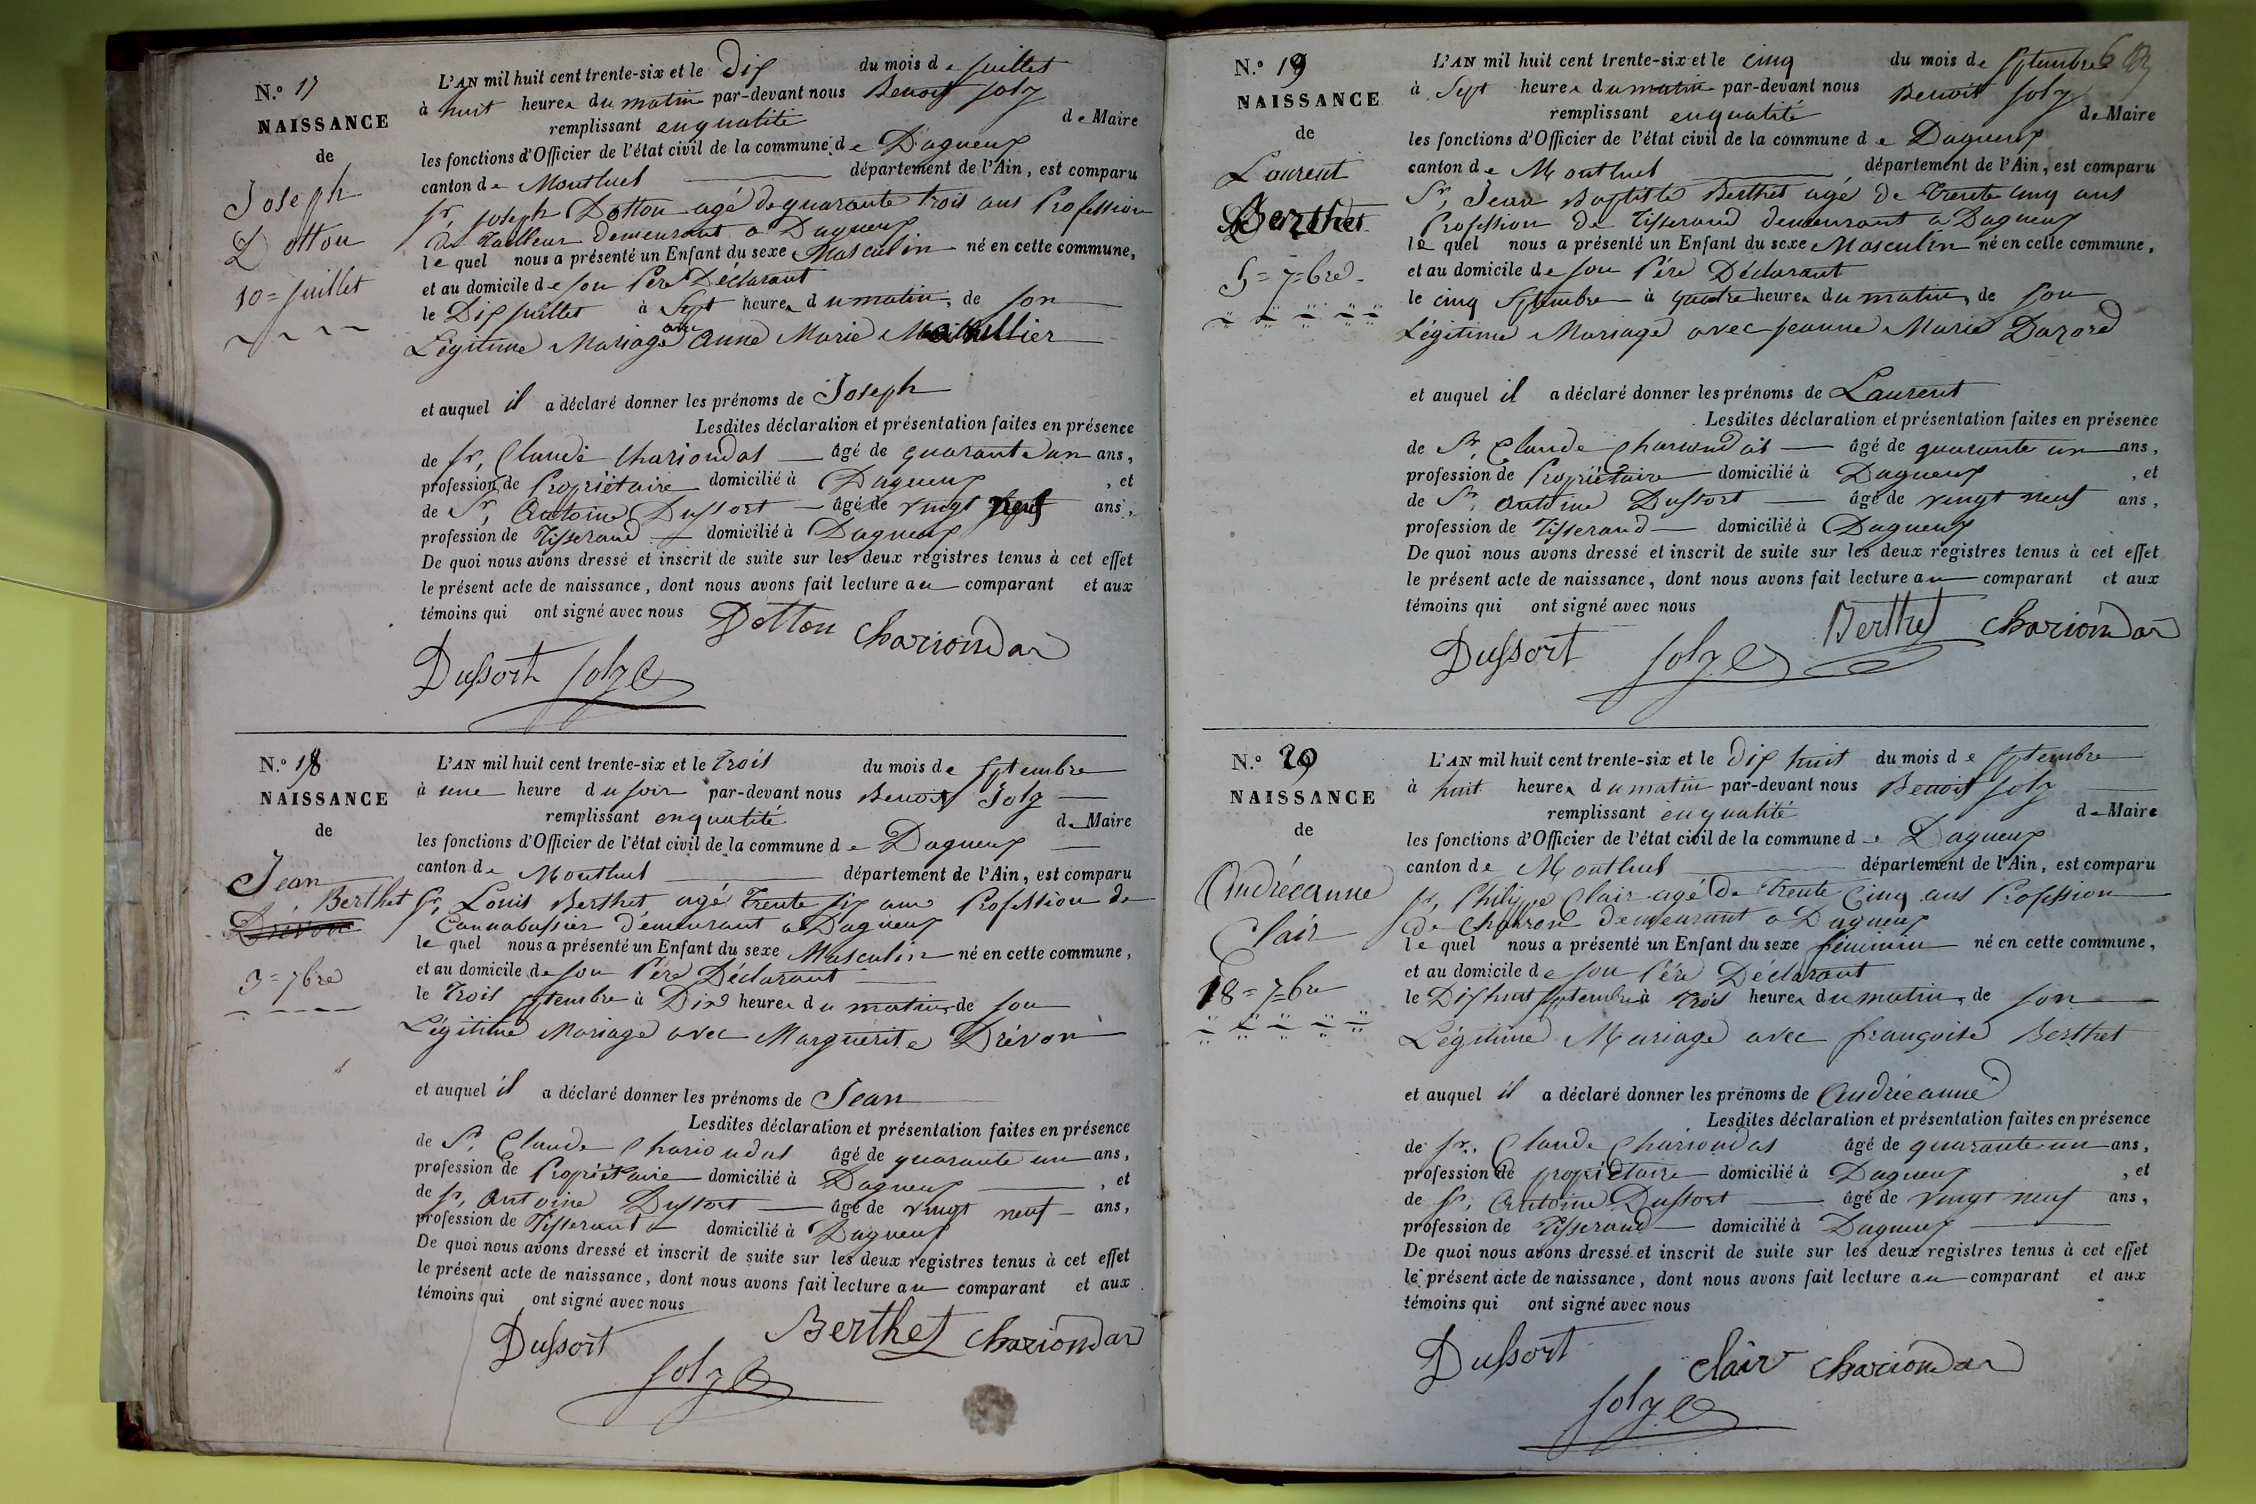 N.º 17
NAISSANCE
de
Joseph
Dottou
10 = juillet
L'AN mil huit cent trente-six et le Dix du mois de juillet
à huit heures du matin par-devant nous Benoit Joly
remplissant en qualité de Maire
les fonctions d'Officier de l'état civil de la commune de Dagneux
canton de Montluel département de l'Ain, est comparu
Sr, Joseph Dottou agé de quarante trois ans Profession
de Tailleur demeurant a Dagneux
lequel nous a présenté un Enfant du sexe Masculin né en cette commune,
et au domicile de son Père Déclarant
le Dix juillet à Sept heures du matin, de son
Légitime Mariage avec Anne Marie
et auquel il a déclaré donner les prénoms de Joseph
Lesdites déclaration et présentation faites en présence
de Sr, Claude Chariondas âgé de quarante un ans,
profession de Propriétaire domicilié à Dagneux, et
de Sr, Antoine Dussort âgé de vingt neuf ans,
profession de Tisserand domicilié à Dagneux
De quoi nous avons dressé et inscrit de suite sur les deux registres tenus à cet effet
le présent acte de naissance, dont nous avons fait lecture au comparant et aux
témoins qui ont signé avec nous
Dottou Chariondas
Dussort Joly
N.º 18
NAISSANCE
de
Jean
Berthet
Drévon
3 = 7bre
L'AN mil huit cent trente-six et le Trois du mois de Septembre
à une heure du soir par-devant nous Benoit Joly
remplissant en qualité de Maire
les fonctions d'Officier de l'état civil de la commune de Dagneux
canton de Montluel département de l'Ain, est comparu
Sr, Louis Berthet agé Trente six ans Profession de
Cannabassier demeurant a Dagneux
lequel nous a présenté un Enfant du sexe Masculin né en cette commune,
et au domicile de son Père Déclarant
le Trois Septembre à Dix heures du matin, de son
Légitime Mariage avec Marguerite Drévon
et auquel il a déclaré donner les prénoms de Jean
Lesdites déclaration et présentation faites en présence
de Sr, Claude Chariondas âgé de quarante un ans,
profession de Propriétaire domicilié à Dagneux, et
de Sr, Antoine Dussort âgé de vingt neuf ans,
profession de Tisserant domicilié à Dagneux
De quoi nous avons dressé et inscrit de suite sur les deux registres tenus à cet effet
le présent acte de naissance, dont nous avons fait lecture au comparant et aux
témoins qui ont signé avec nous
Dussort Berthet Chariondas
Joly
N.º 19
NAISSANCE
de
Laurent
Berthet
5 = 7=bre
L'AN mil huit cent trente-six et le cinq du mois de Septembre
à Sept heures du matin par-devant nous Benoit Joly
remplissant en qualité de Maire
les fonctions d'Officier de l'état civil de la commune de Dagneux
canton de Montluel département de l'Ain, est comparu
Sr, Jean Baptiste Berthet agé de Trente cinq ans
Profession de Tisserand demeurant a Dagneux
lequel nous a présenté un Enfant du sexe Masculin né en cette commune,
et au domicile de son Père Déclarant
le cinq Septembre à quatre heures du matin, de son
Légitime Mariage avec Jeanne Marie Dazord
et auquel il a déclaré donner les prénoms de Laurent
Lesdites déclaration et présentation faites en présence
de Sr, Claude Chariondas âgé de quarante un ans,
profession de Propriétaire domicilié à Dagneux, et
de Sr, Antoine Dussort âgé de vingt neuf ans,
profession de Tisserand domicilié à Dagneux
De quoi nous avons dressé et inscrit de suite sur les deux registres tenus à cet effet
le présent acte de naissance, dont nous avons fait lecture au comparant et aux
témoins qui ont signé avec nous
Berthet Chariondas
Dussort Joly
N.º 20
NAISSANCE
de
Andréeanne
Clair
18 = 7=bre
L'AN mil huit cent trente-six et le Dix huit du mois de Septembre
à huit heures du matin par-devant nous Benoit Joly
remplissant en qualité de Maire
les fonctions d'Officier de l'état civil de la commune de Dagneux
canton de Montluel département de l'Ain, est comparu
Sr, Philippe Clair agé de Trente Cinq ans Profession
de Charron demeurant a Dagneux
lequel nous a présenté un Enfant du sexe féminin né en cette commune,
et au domicile de son Père Déclarant
le Dix huit Septembre à Trois heures du matin, de son
Légitime Mariage avec françoise Berthet
et auquel il a déclaré donner les prénoms de Andréeanne
Lesdites déclaration et présentation faites en présence
de Sr, Claude Chariondas âgé de quarante un ans,
profession de propriétaire domicilié à Dagneux, et
de Sr, Antoine Dussort âgé de vingt neuf ans,
profession de Tisserand domicilié à Dagneux
De quoi nous avons dressé et inscrit de suite sur les deux registres tenus à cet effet
le présent acte de naissance, dont nous avons fait lecture au comparant et aux
témoins qui ont signé avec nous
Dussort Clair Chariondas
Joly